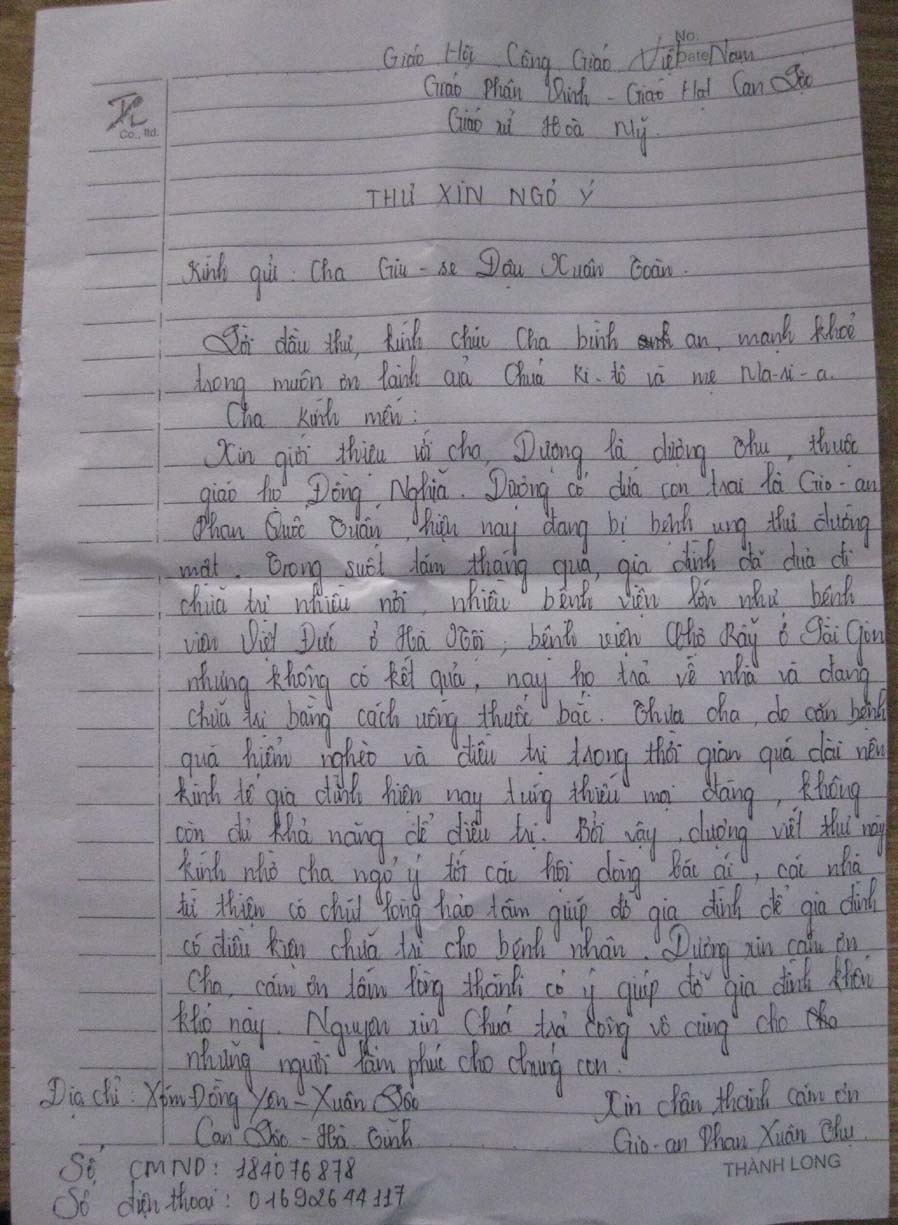 No.
Date
Giáo Hội Công Giáo Việt Nam
Giáo Phận Vinh - Giáo Hạt Can Lộc
Co., ltd.
Giáo xứ Hoà Mỹ.
THƯ XIN NGỎ Ý
Kính gửi: Cha Giu-se Đậu Xuân Toàn.
Lời đầu thư, kính chúc Cha bình an, mạnh khoẻ
trong muôn ơn lành của Chuá Ki-tô và mẹ Ma-ri-a.
Cha kính mến:
Xin giới thiệu với cha, Dượng là dượng Thu, thuộc
giáo họ Đông Nghĩa. Dượng có đứa con trai là Gio-an
Phan Quốc Tuấn, hiện nay đang bị bệnh ung thư đường
mật. Trong suốt tám tháng qua, gia đình đã đưa đi
chữa trị nhiều nơi, nhiều bệnh viện lớn như bệnh
viện Việt Đức ở Hà Nội, bệnh viện Chợ Rẫy ở Sài Gòn
nhưng không có kết quả, nay họ trả về nhà và đang
chữa trị bằng cách uống thuốc bắc. Thưa cha, do căn bệnh
quá hiểm nghèo và điều trị trong thời gian quá dài nên
kinh tế gia đình hiện nay túng thiếu mọi đàng, không
còn đủ khả năng để điều trị. Bởi vậy, dượng viết thư này
kính nhờ cha ngỏ ý tới các hội dòng bác ái, các nhà
từ thiện có chút lòng hảo tâm giúp đỡ gia đình để gia đình
có điều kiện chữa trị cho bệnh nhân. Dượng xin cảm ơn
Cha, cám ơn tấm lòng thành có ý giúp đỡ gia đình khốn
khó này. Nguyện xin Chuá trả công vô cùng cho
những người làm phúc cho chúng con.
Địa chỉ: Xóm Đông Yên - Xuân Lộc
Can Lộc - Hà Tĩnh
Xin chân thành cảm ơn
Gio-an Phan Xuân Thu
Số CMND: 184076878
Số điện thoại: 01692644117
THÀNH LONG